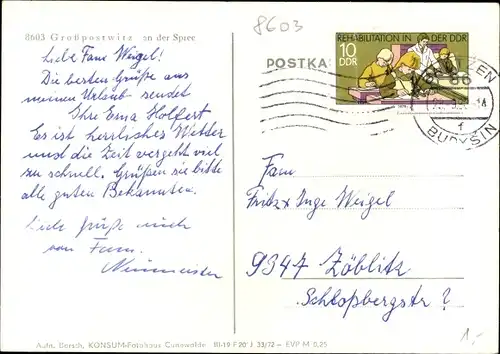 8603 Großpostwitz an der Spree
8603
Liebe Fam Weigel!
Die besten Grüße aus
meinen Urlaub sendet
Ihre Erna Holfert
Es ist herrliches Wetter
und die Zeit vergeht viel
zu schnell. Grüßen sie bitte
alle guten Bekannten.
Liebe Grüße auch
von Fam.
Neumeister
POSTKA
REHABILITATION IN DER DDR
10
DDR
BAUTZEN
86
1
BUDYŠIN
Fam
Fritz x Inge Weigel
9347 Zöblitz
Schloßbergstr ?
Aufn. Darsch, KONSUM-Fotohaus Cunewalde III-19 F 20' J 33/72 — EVP M 0,25
1,-